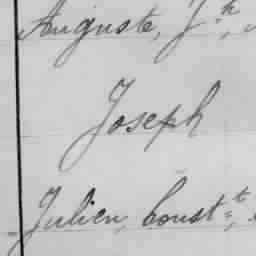 Auguste, J.h,
Joseph
Julien, Const.t,